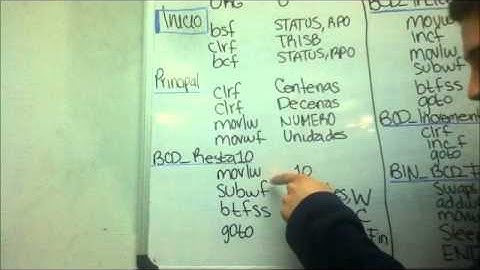 ORG 0
Inicio
bsf STATUS,RP0
clrf TRISB
bcf STATUS,RP0
Principal
clrf Centenas
clrf Decenas
movlw NUMERO
movwf Unidades
BCD_Resta10
movlw 10
subwf W
btfss C
goto Fin
movlw
incf
movlw
subwf
btfss
goto
BCD_Increment
clrf
incf
goto
BIN_BCD_F
Swapf
addwf
Sleep
END